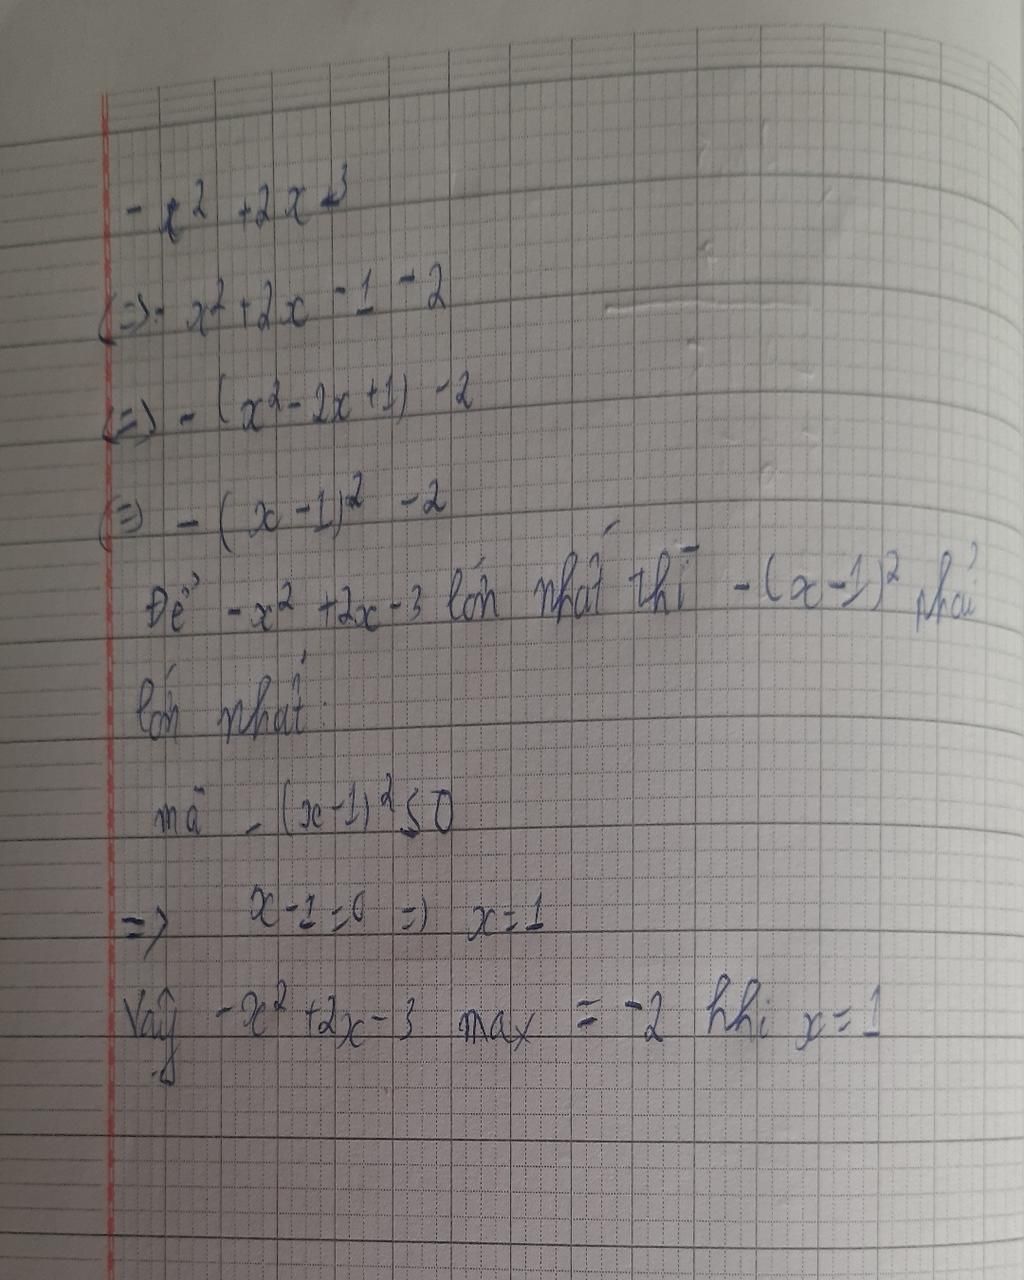 - x² + 2x - 3
(=) - x² + 2x - 1 - 2
(=) - (x² - 2x + 1) - 2
(=) - (x - 1)² - 2
Để - x² + 2x - 3 lớn nhất thì - (x - 1)² phải
lớn nhất
mà - (x - 1)² ≤ 0
=> x - 1 = 0 => x = 1
Vậy - x² + 2x - 3 max = -2 khi x = 1